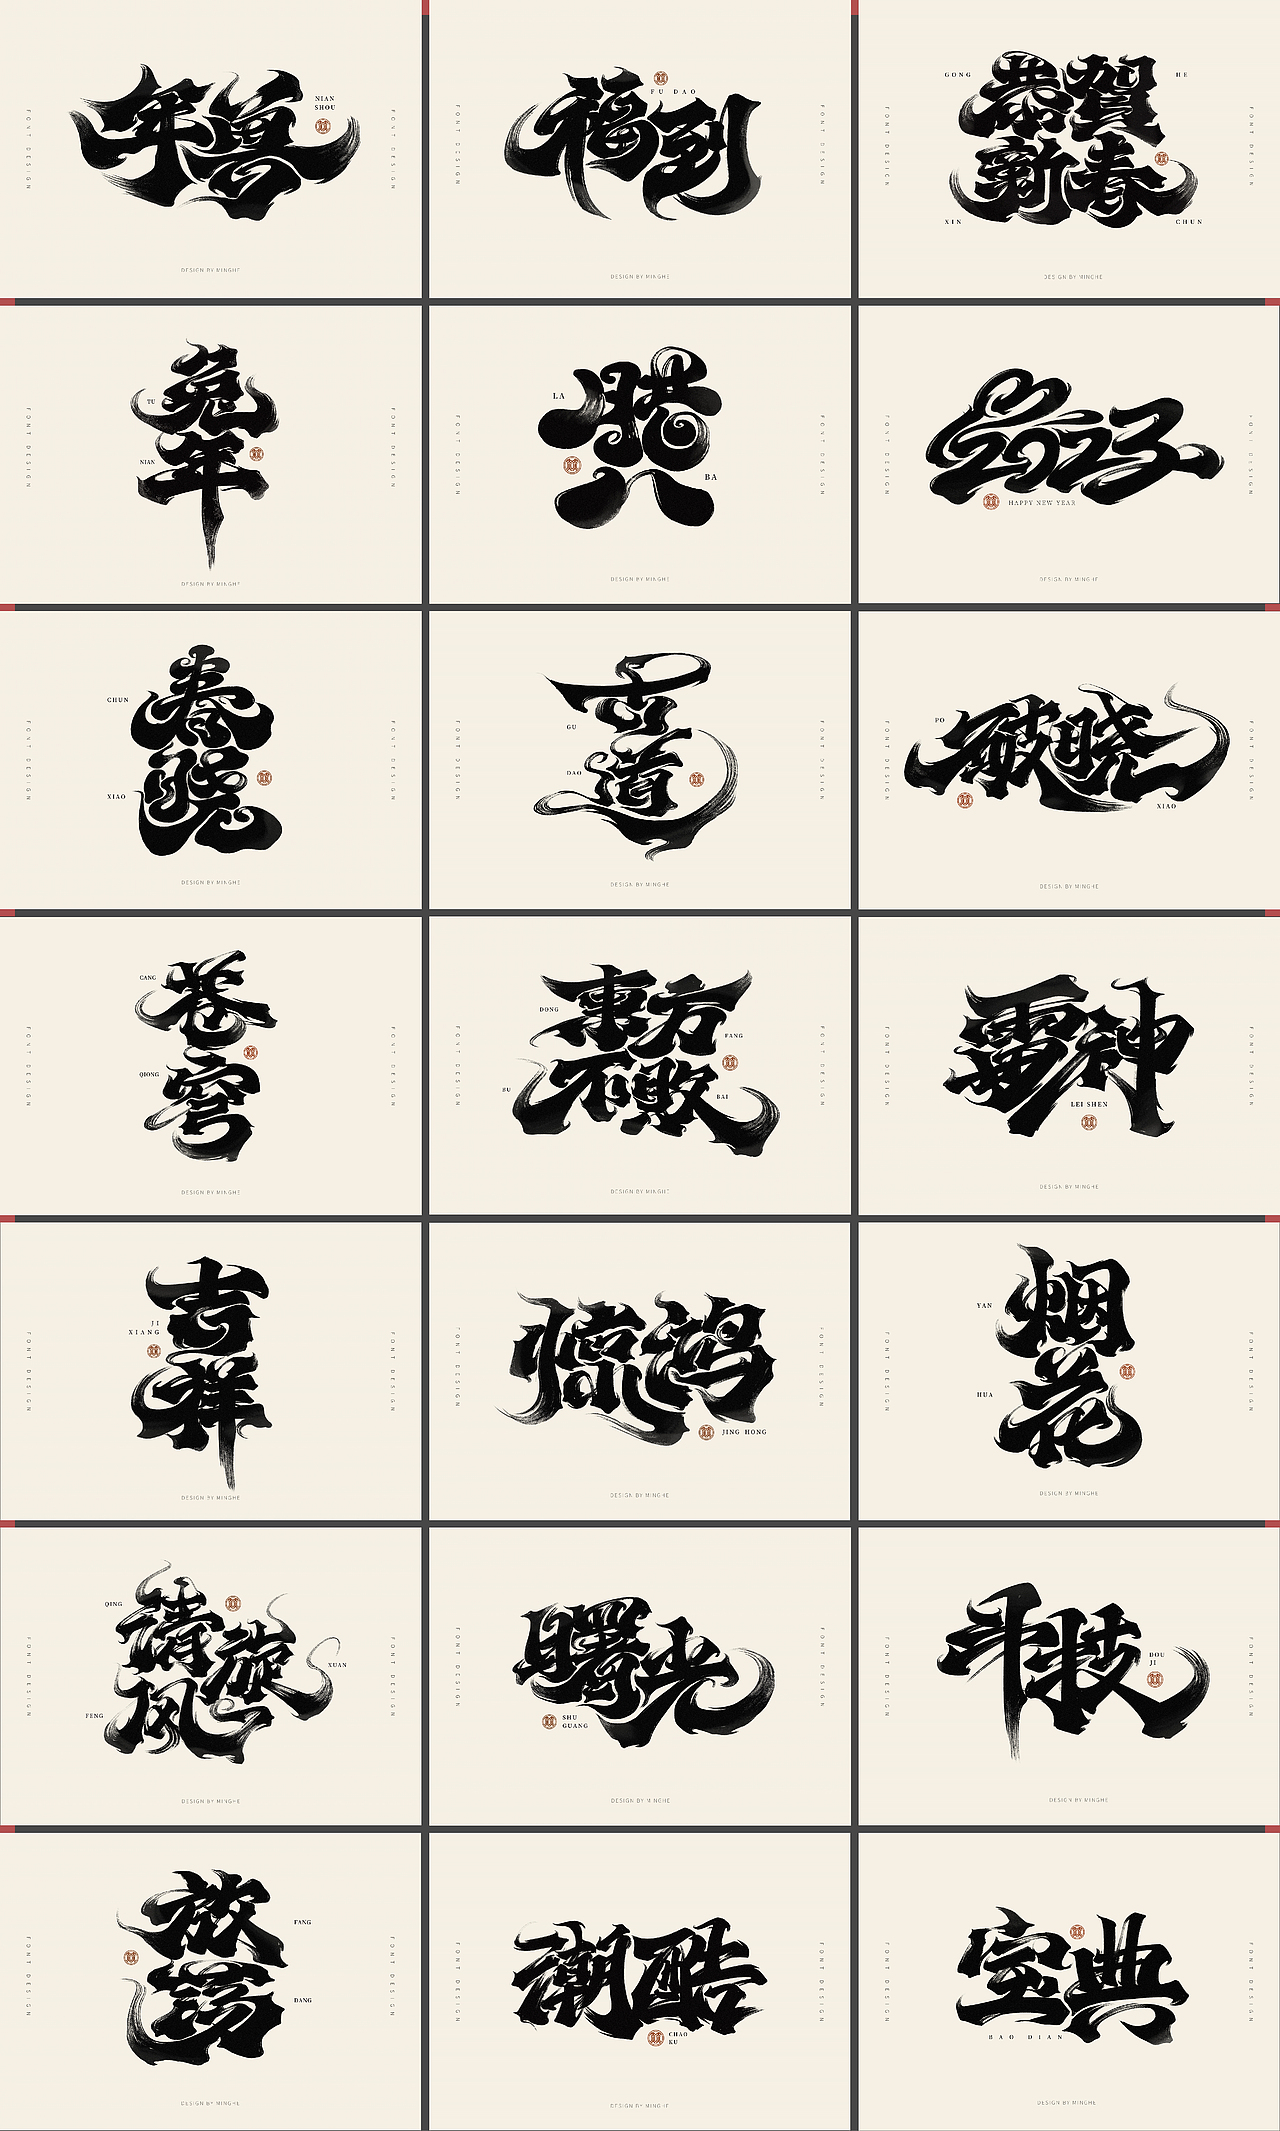 年兽
NIAN
SHOU
FONT DESIGN
FONT DESIGN
DESIGN BY MINGHE
福到
FU DAO
FONT DESIGN
FONT DESIGN
DESIGN BY MINGHE
恭賀
新春
GONG
HE
XIN
CHUN
FONT DESIGN
FONT DESIGN
DESIGN BY MINGHE
兔年
TU
NIAN
FONT DESIGN
FONT DESIGN
DESIGN BY MINGHE
腊八
LA
BA
FONT DESIGN
FONT DESIGN
DESIGN BY MINGHE
2023
HAPPY NEW YEAR
FONT DESIGN
FONT DESIGN
DESIGN BY MINGHE
春晓
CHUN
XIAO
FONT DESIGN
FONT DESIGN
DESIGN BY MINGHE
古道
GU
DAO
FONT DESIGN
FONT DESIGN
DESIGN BY MINGHE
破晓
PO
XIAO
FONT DESIGN
FONT DESIGN
DESIGN BY MINGHE
苍穹
CANG
QIONG
FONT DESIGN
FONT DESIGN
DESIGN BY MINGHE
東方
不敗
DONG
FANG
BU
BAI
FONT DESIGN
FONT DESIGN
DESIGN BY MINGHE
雷神
LEI SHEN
FONT DESIGN
FONT DESIGN
DESIGN BY MINGHE
吉祥
JI
XIANG
FONT DESIGN
FONT DESIGN
DESIGN BY MINGHE
惊鸿
JING HONG
FONT DESIGN
FONT DESIGN
DESIGN BY MINGHE
烟花
YAN
HUA
FONT DESIGN
FONT DESIGN
DESIGN BY MINGHE
清旋风
QING
XUAN
FENG
FONT DESIGN
FONT DESIGN
DESIGN BY MINGHE
曙光
SHU
GUANG
FONT DESIGN
FONT DESIGN
DESIGN BY MINGHE
斗技
DOU
JI
FONT DESIGN
FONT DESIGN
DESIGN BY MINGHE
放荡
FANG
DANG
FONT DESIGN
FONT DESIGN
DESIGN BY MINGHE
潮酷
CHAO
KU
FONT DESIGN
FONT DESIGN
DESIGN BY MINGHE
宝典
BAO DIAN
FONT DESIGN
FONT DESIGN
DESIGN BY MINGHE